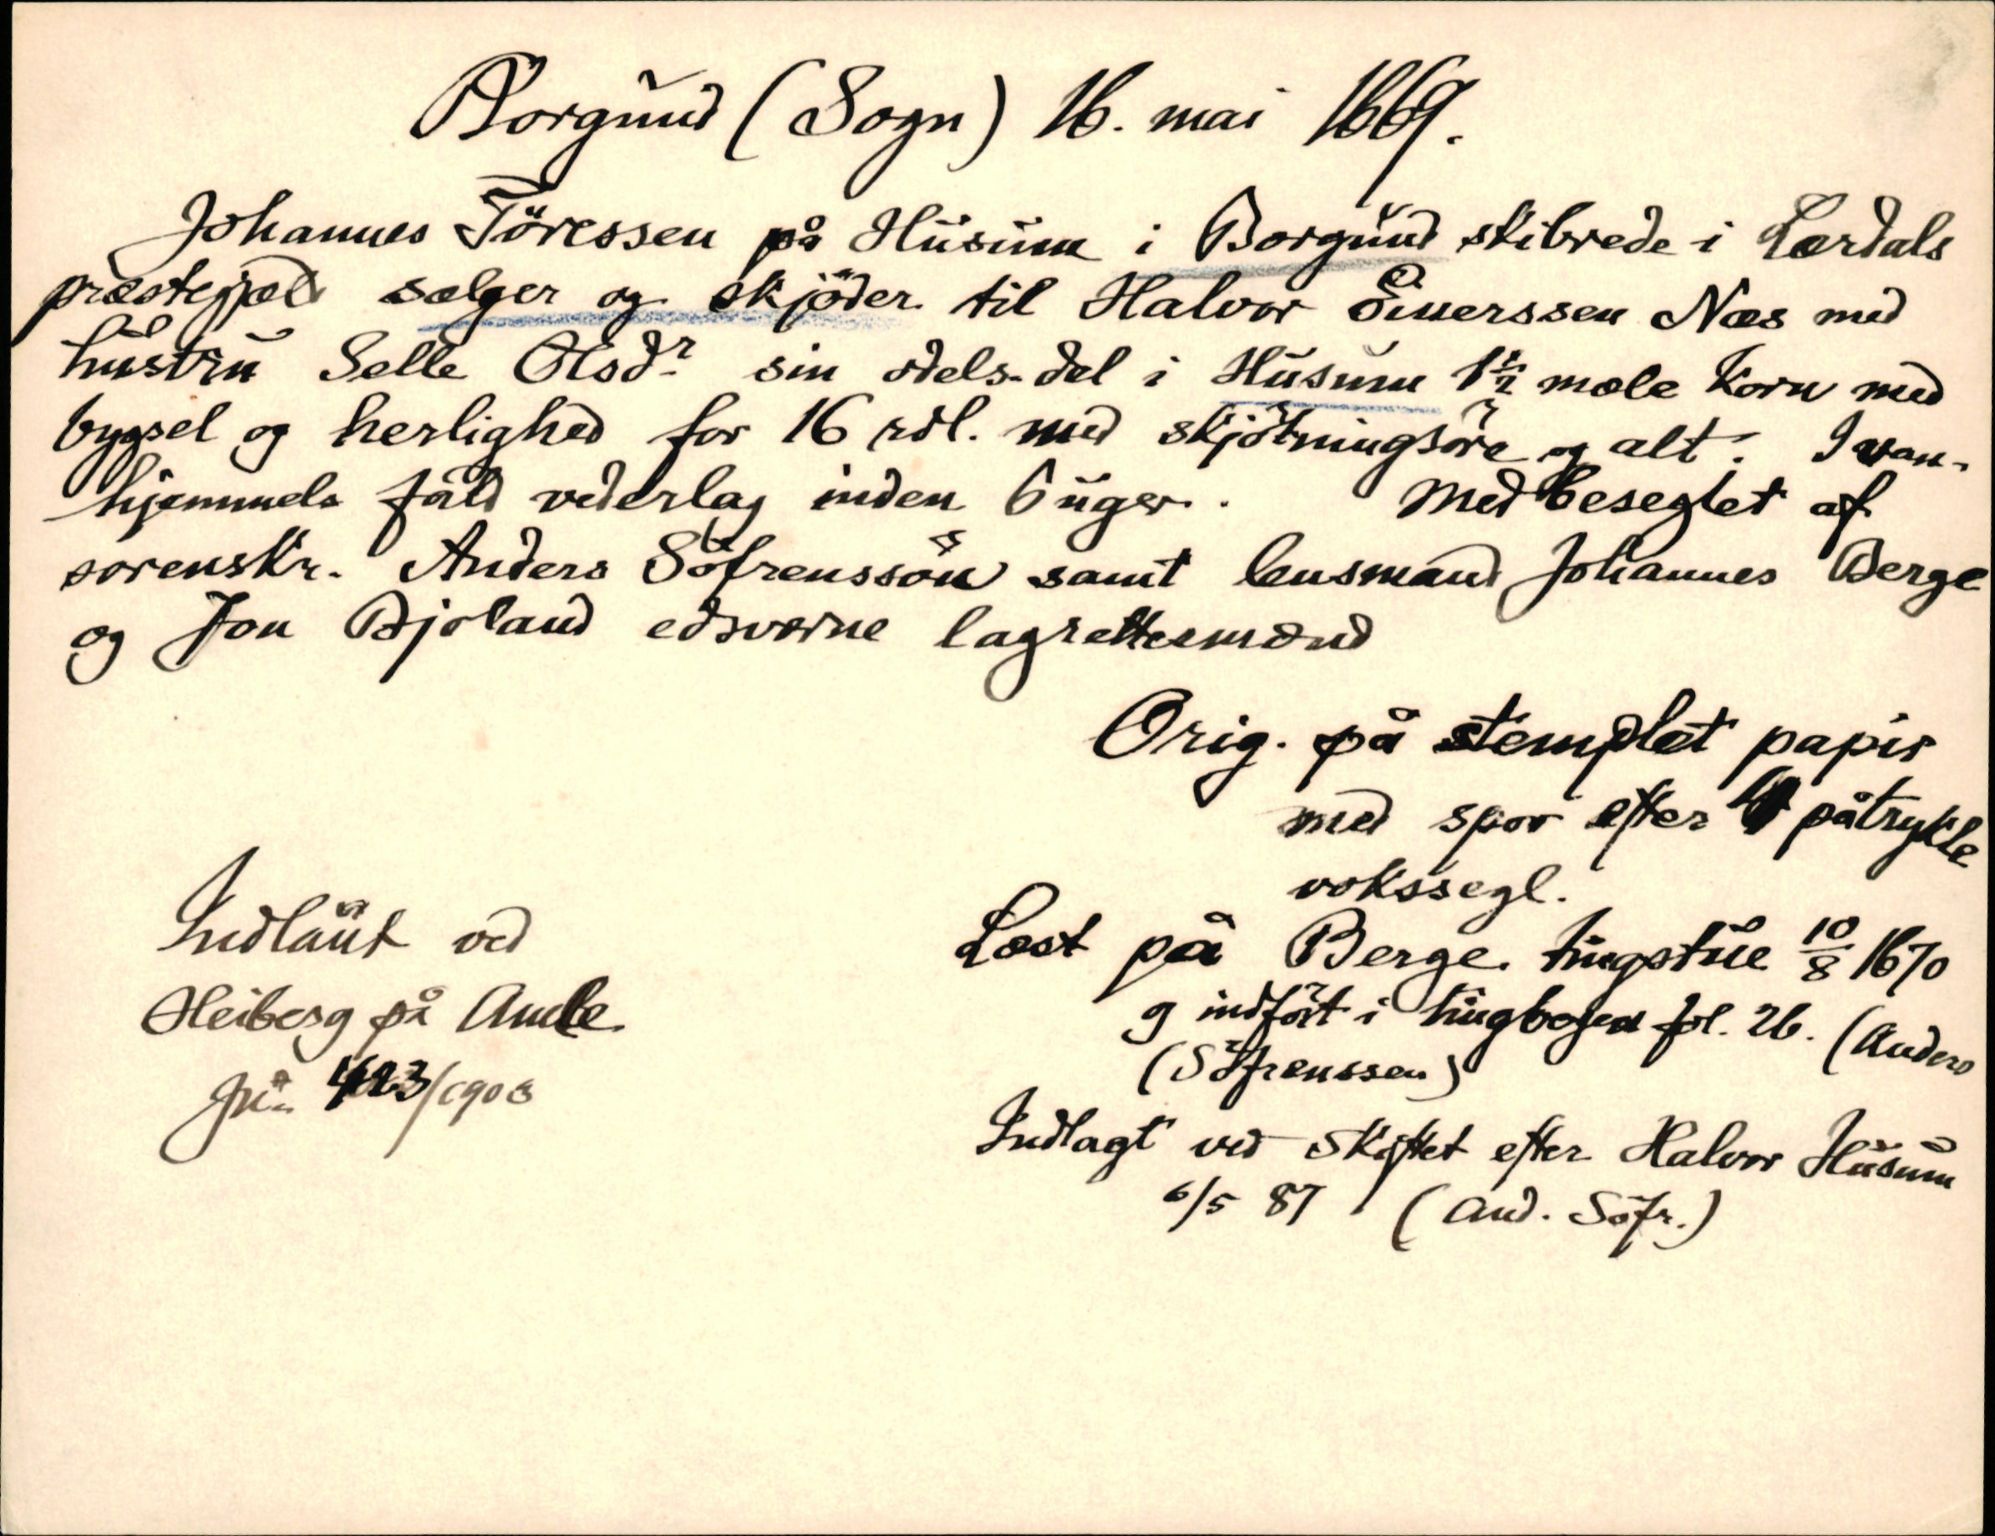 Borgund (Sogn) 16. mai 1669.
Johannes Töressen på Husum i Borgund skibrede i Lærdals
præstegjæld sælger og skjöder til Halvor Einerssen Næs med
hustru Selle Olsdr sin odels-del i Husum 1½ mæle korn med
bygsel og herlighed for 16 rdl. med skjötningsöre og alt. I van-
hjemmels fald vederlag inden 6 uger. Medbeseglet af
sorenskr. Anders Söfrenssön samt lensmand Johannes Berge
og Jon Bjoland edsvorne lagrettesmænd
Orig. på stemplet papir
med spor efter 4 påtrykte
vokssegl.
Indlånt ved
Heiberg på Amble.
Jn. 423/1908
Læst på Berge tingstue 10/8 1670
og indfört i tingbogen fol. 26. (Anders
(Söfrenssen)
Indlagt ved skiftet efter Halvor Husum
6/5 87 (And. Söfr.)